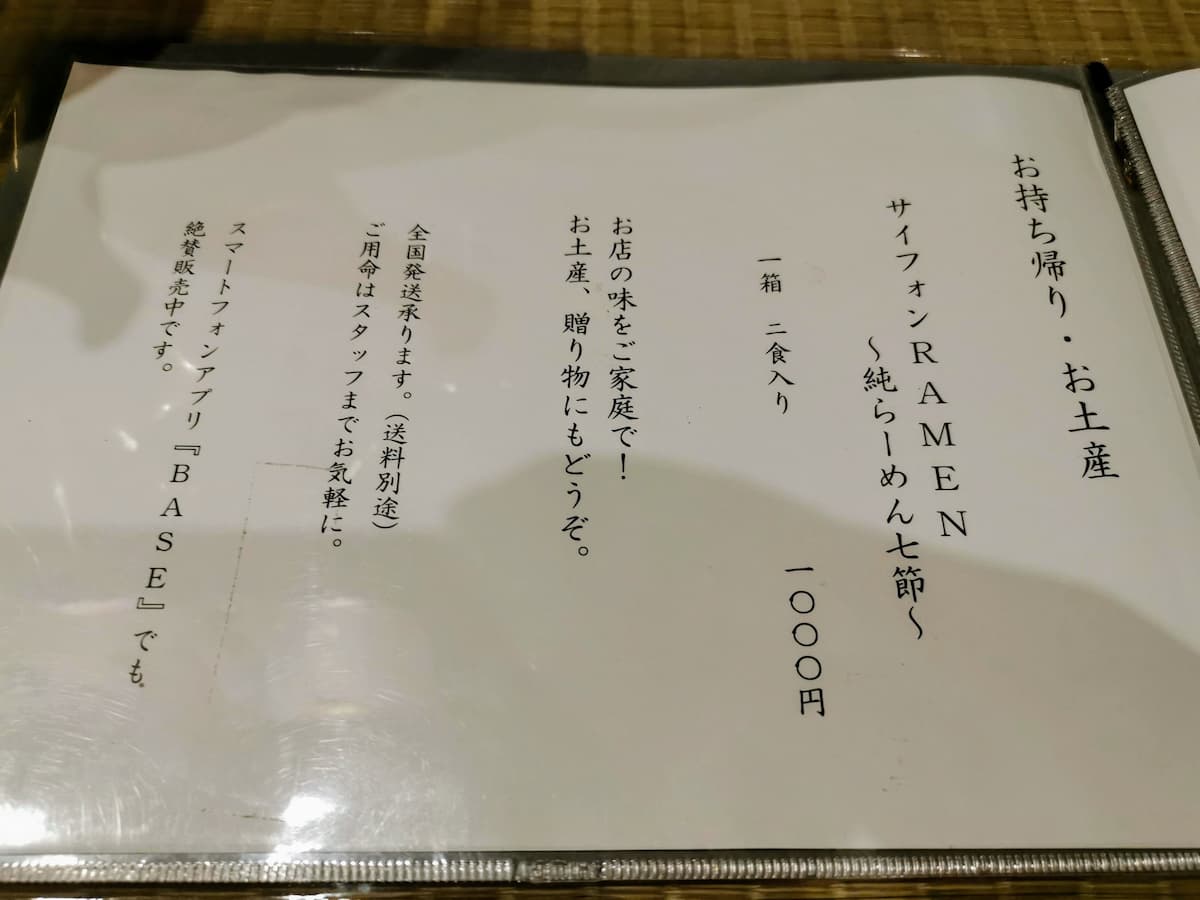 お持ち帰り・お土産
サイフォンRAMEN
〜純らーめん七節〜
一箱 二食入り
一〇〇〇円
お店の味をご家庭で!
お土産、贈り物にもどうぞ。
全国発送承ります。(送料別途)
ご用命はスタッフまでお気軽に。
スマートフォンアプリ『BASE』でも
絶賛販売中です。